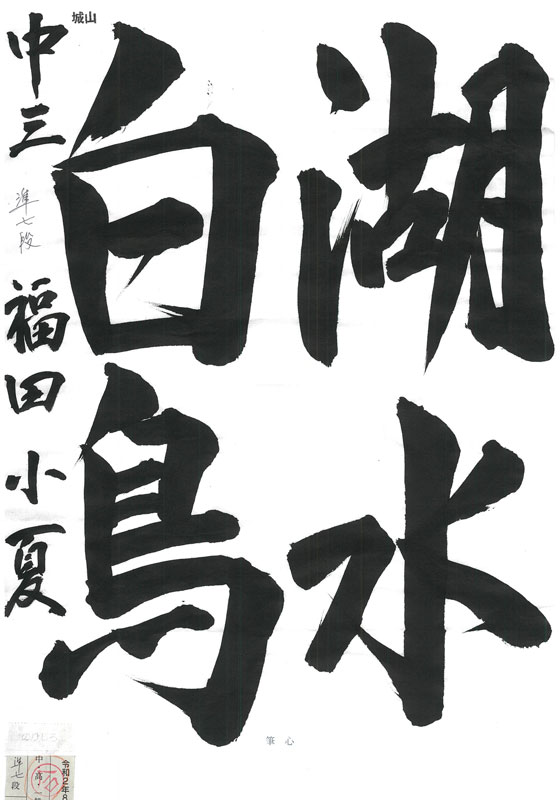 湖水
白鳥
城山
中三 準七段 福田小夏
心筆
令和2年8
中・高一
準七段